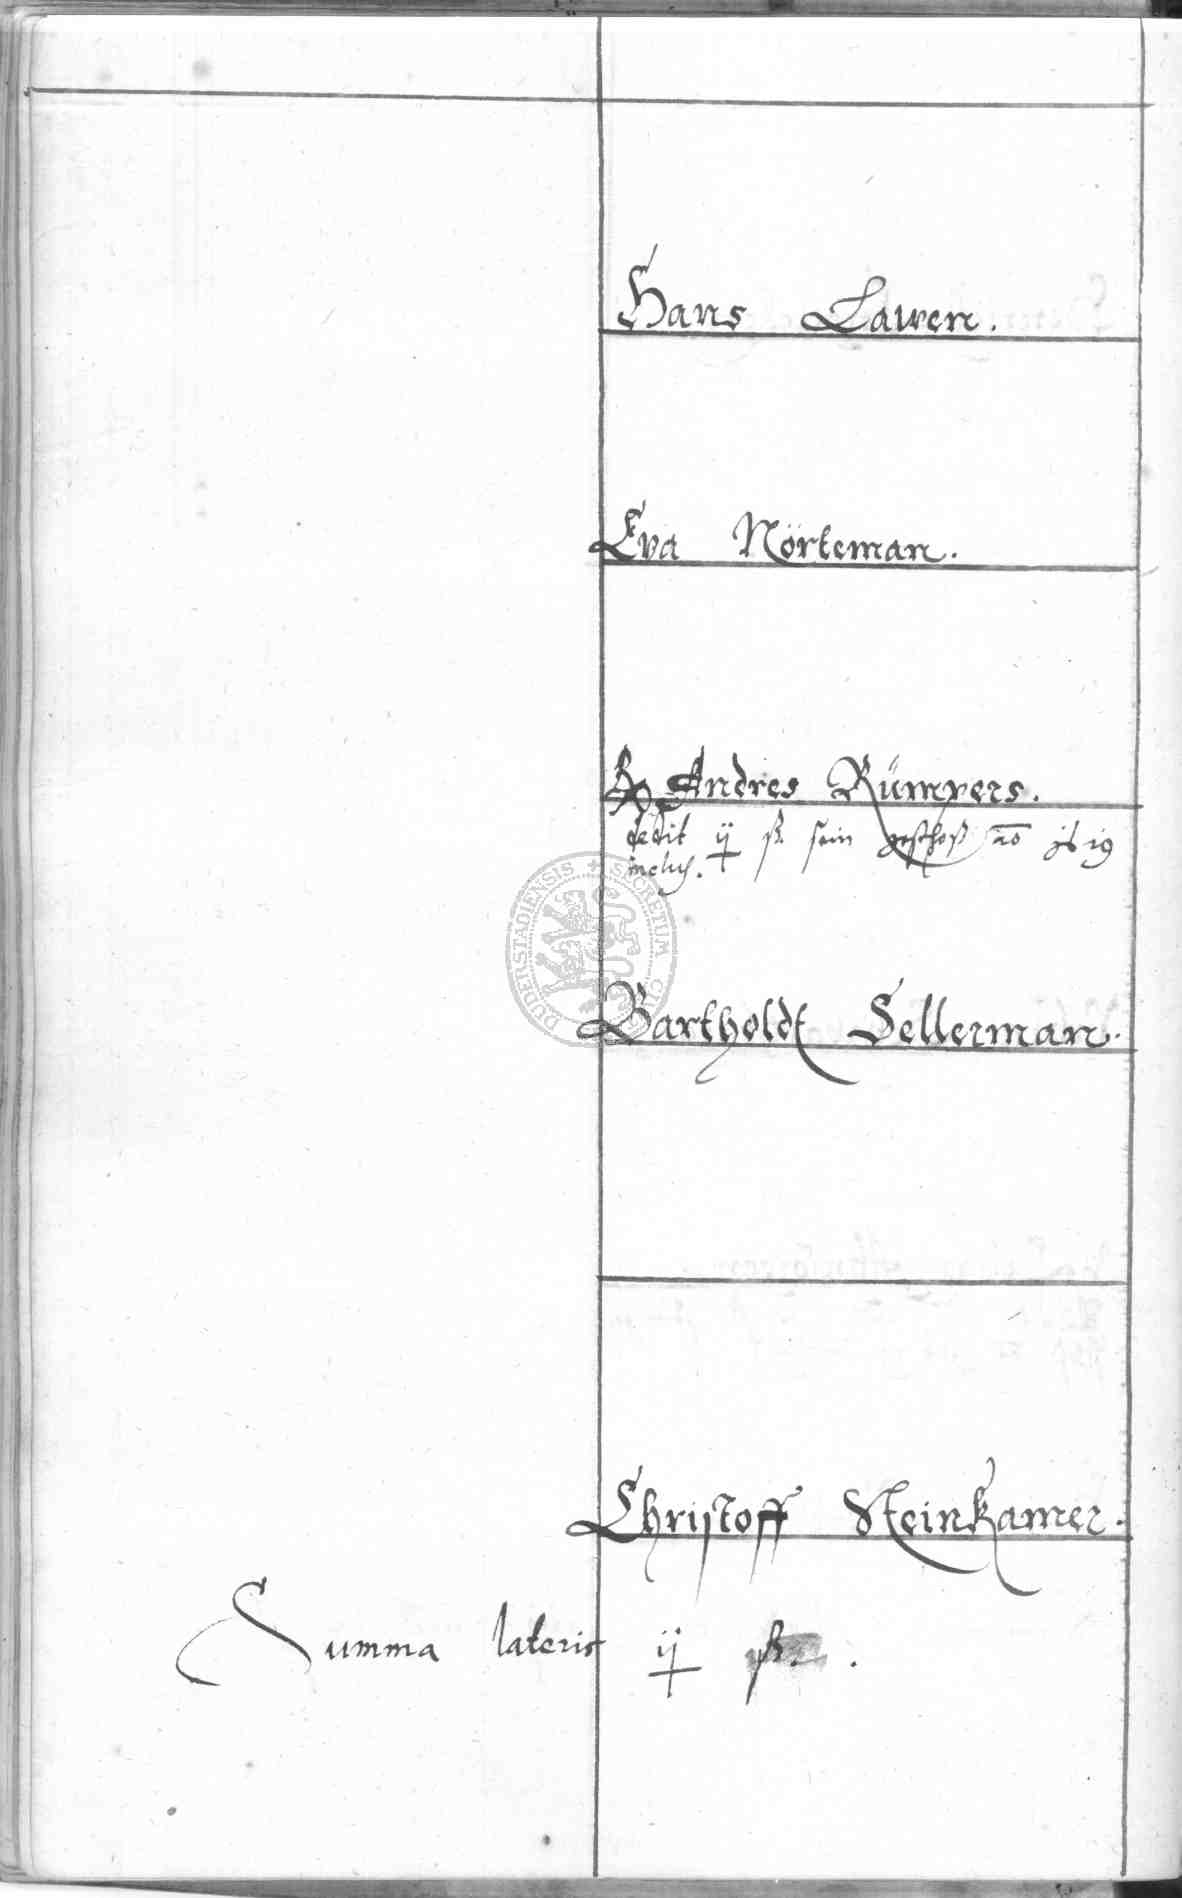 Hans Lawen.
Eva Nörteman.
Andres Rümpers.
dedit ij ß sein geschoß ao
inclus.
DUDERSTADIENSIS SECRETUM
Bartholdt Sellerman.
Christoff Steinkamer.
Summa lateris ij ß.